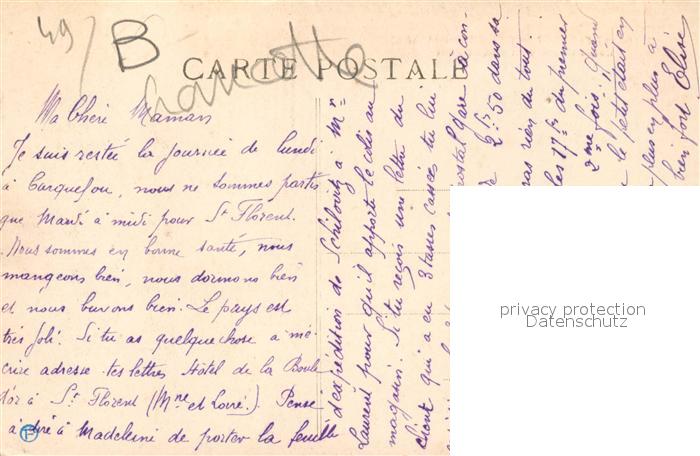 49
B
CARTE POSTALE
francotte
Ma Chère Maman
Je suis restée la journée de lundi
à Carquefou, nous ne sommes partis
que Mardi à midi pour St Florent.
Nous sommes en bonne santé, nous
mangeons bien, nous dormons bien
et nous buvons bien. Le pays est
très joli. Si tu as quelquechose à m'é-
crire adresse tes lettres Hôtel de la Boule
d'or à St Florent (Mne et Loire). Pense
à dire à Madeleine de porter la feuille
d'expédition de Schilovitz à Mr
Laurent pour qu'il apporte le colis au
magasin. Si tu reçois une lettre du
client qui a eu 3 tasses cassées tu lui
postal
2f 50 dans sa
rien du tout.
les 17f du premier
2me fois, Quand
le petit était en
plus en plus à
bien fort Elise
privacy protection
Datenschutz